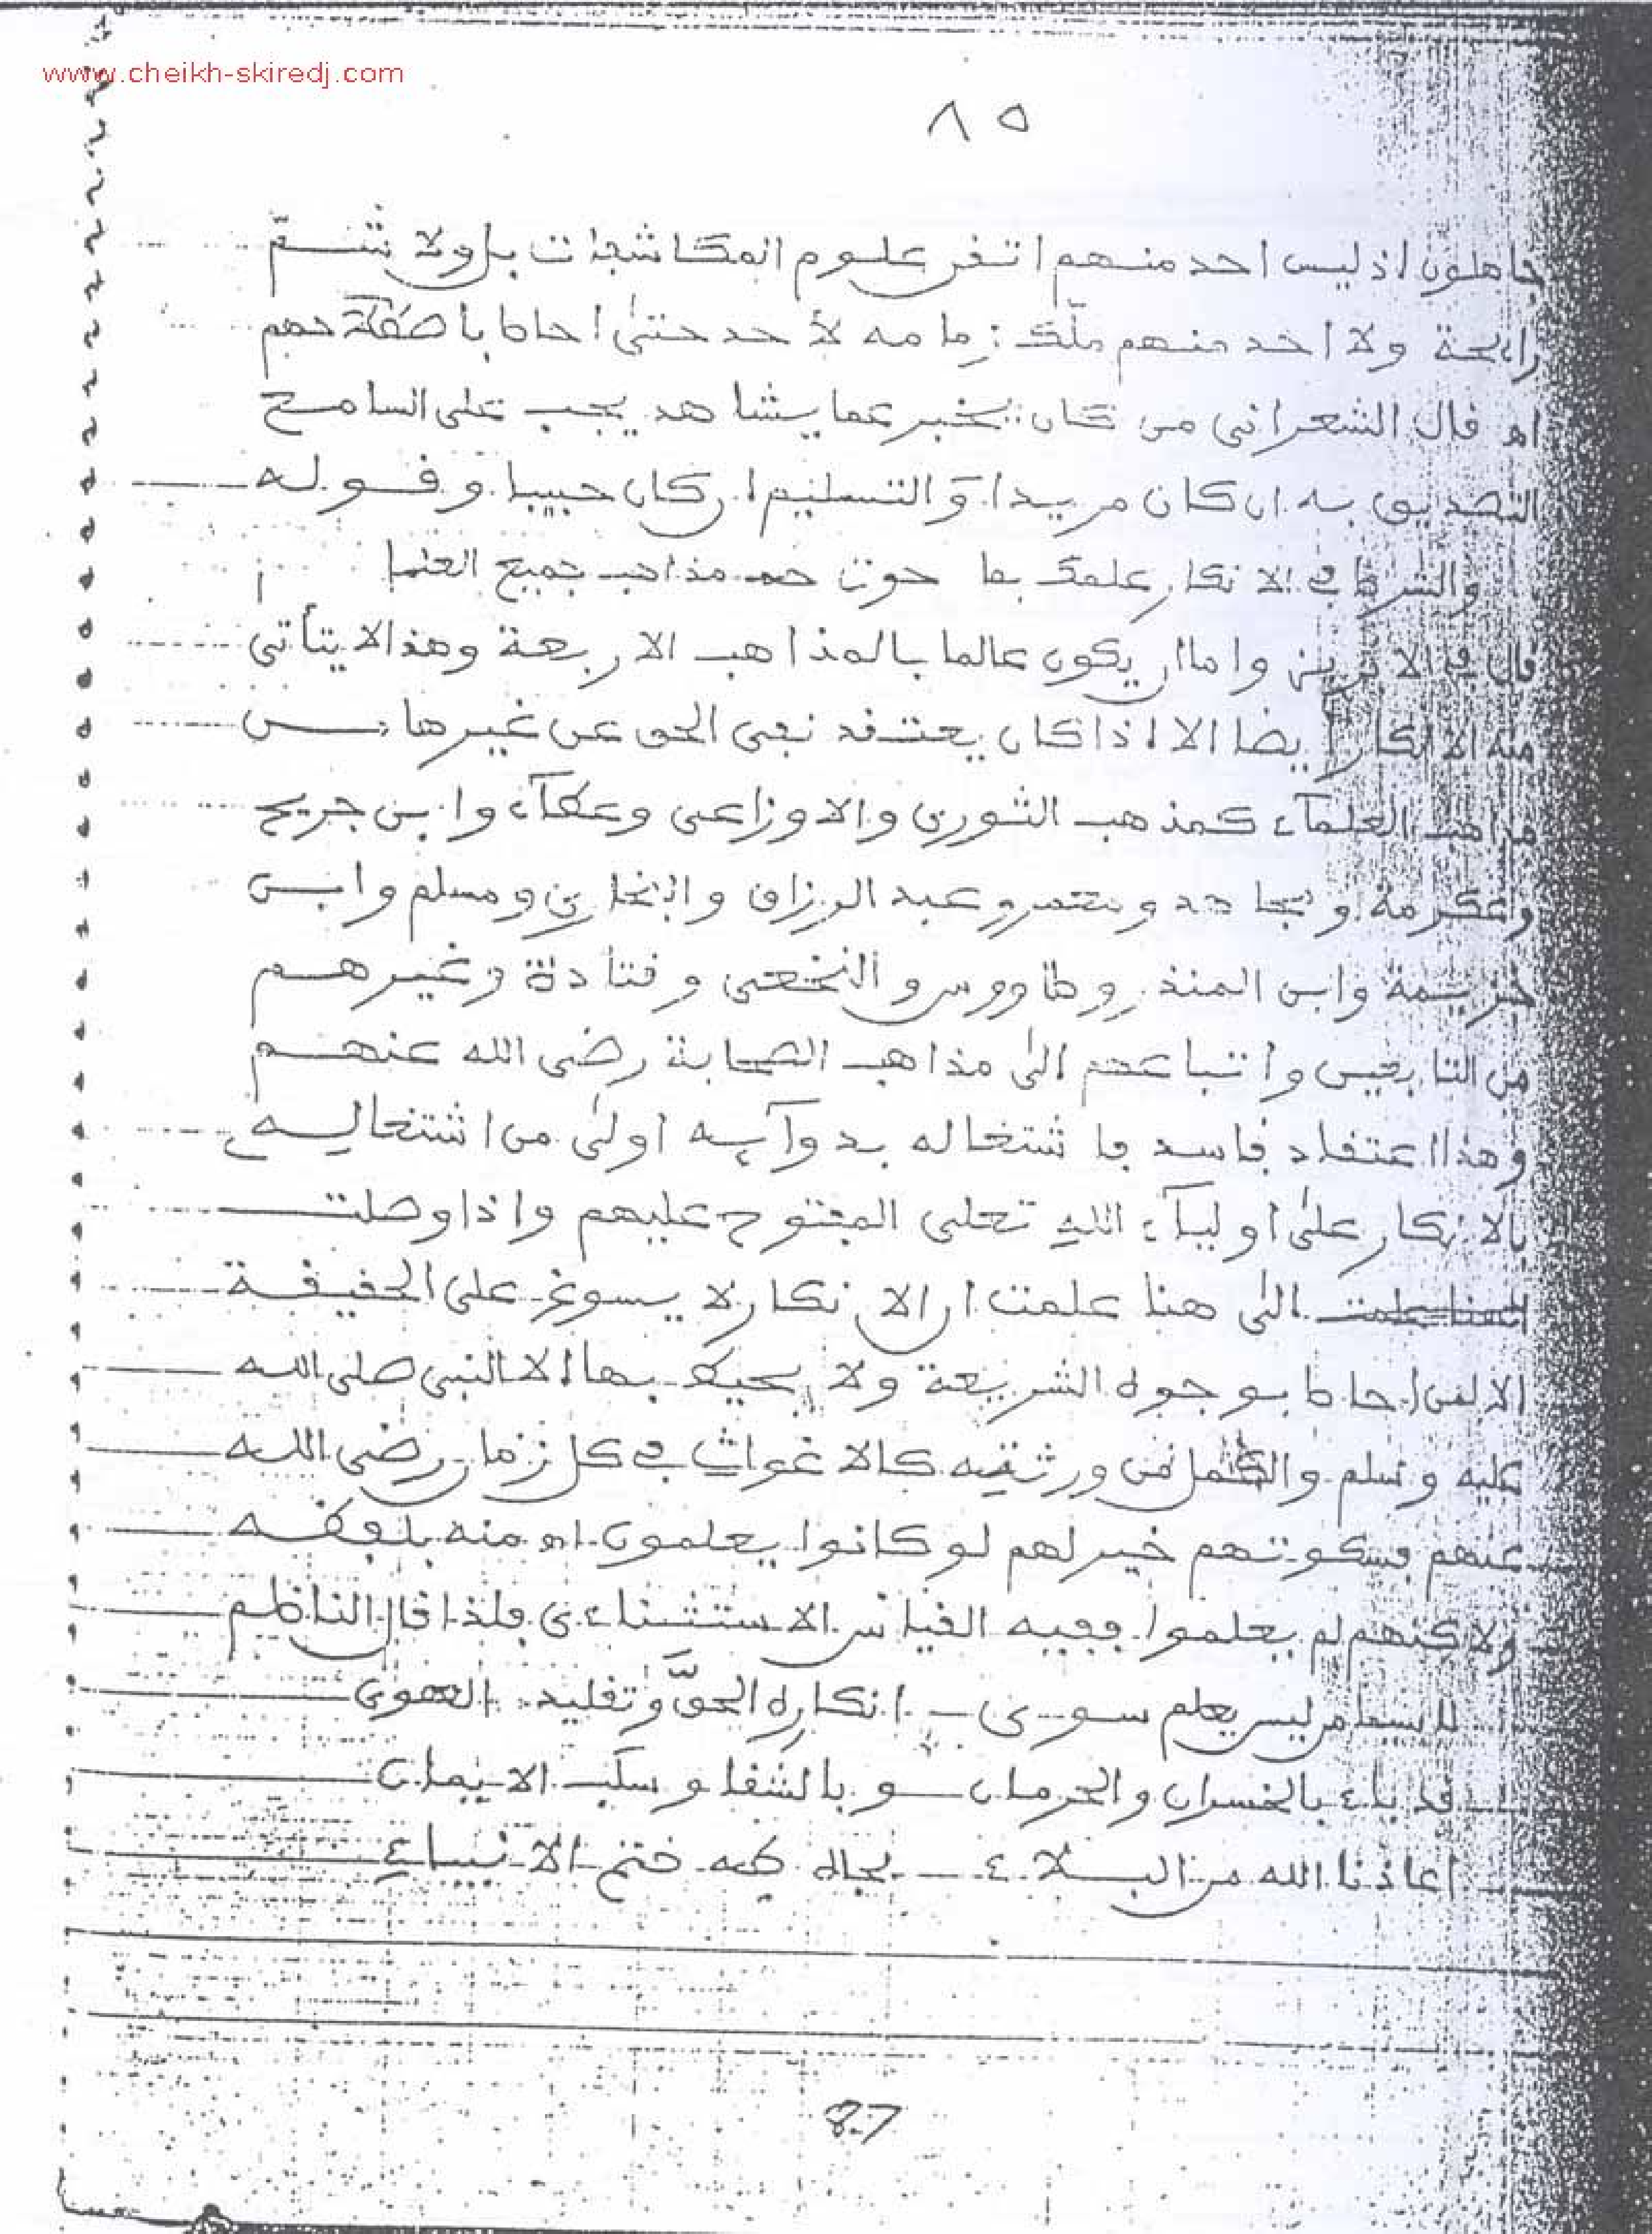 www.cheikh-skiredj.com
٨٥
جاهلون اذ ليس احد منهم اتقن علوم المكاشفات بل ولا شمّ
رايحة ولا احد منهم ملّك زمامه لأحد حتى احاط باصطلاحهم
اهـ قال الشعراني من كان يخبر عما يشاهد يجب على السامع
التصديق به ان كان مريدا وَالتسليم ان كان حبيبا وقوله
والشرط في الانكار علمك بما حوت مذاهب جميع العلما
قال في الابريز واما ان يكون عالما بالمذاهب الاربعة وهذا لا يتأتى
منه الانكار ايضا الا اذا كان يعتقد نفي الحق عن غيرها من
مذاهب العلمآء كمذهب الثوري والاوزاعي وعطآء وابن جريج
وعكرمة ومجاهد ومعمر وعبد الرزاق والبخاري ومسلم وابن
خزيمة وابن المنذر وطاووس والنخعي وقتادة وغيرهم
من التابعين واتباعهم الى مذاهب الصحابة رضي الله عنهم
وهذا اعتقاد فاسد فاشتغاله بدوآيه اولى من اشتغاله
بالانكار على اوليآء الله تعلى المفتوح عليهم واذا وصلت
الى هنا علمت ان الانكار لا يسوغ على الحقيقة
الا لمن احاط بوجوه الشريعة ولا يحيط بها الا النبي صلى الله
عليه وسلم والكمل من ورثته كالاغواث في كل زمان رضي الله
عنهم فسكوتهم خير لهم لو كانوا يعلمون اهـ منه بلفظه
ولاكنهم لم يعلموا ففيه القياس الاستثناءي فلذا قال الناظم
من ليس يعلم سوى انكاره الحقَّ وتقليد الهوى
قد باء بالخسران والحرمان وبالشقا وسلب الايمان
اعاذنا الله من البلاء بجاه طه ختم الانبياء
87